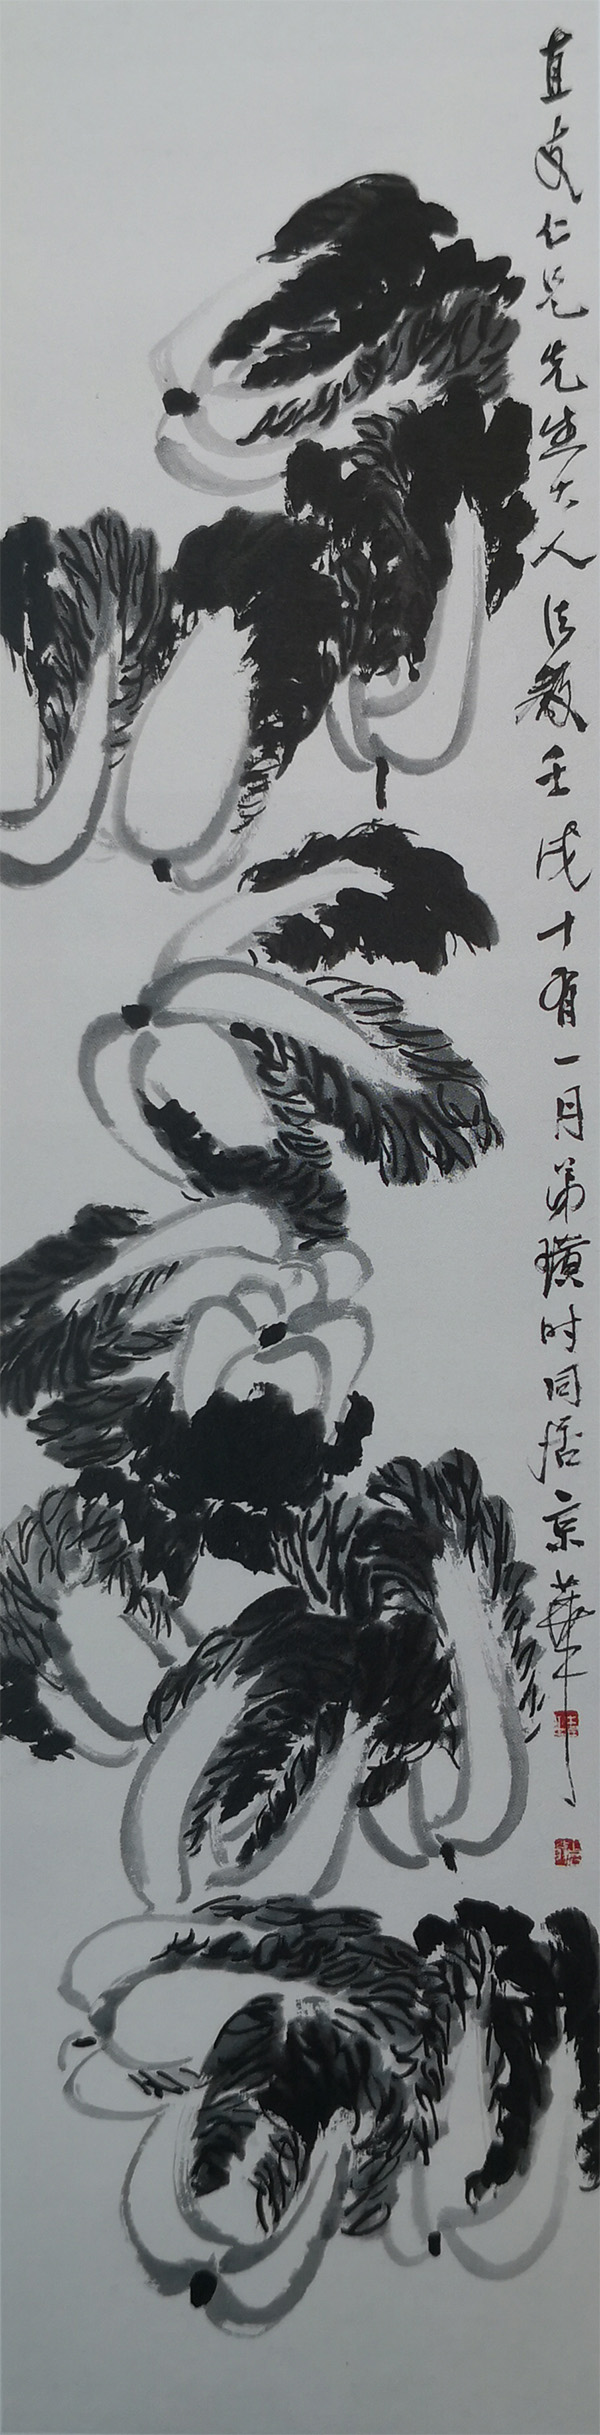 直支仁兄先生大人法教壬戌十有一月弟璜时同居京華